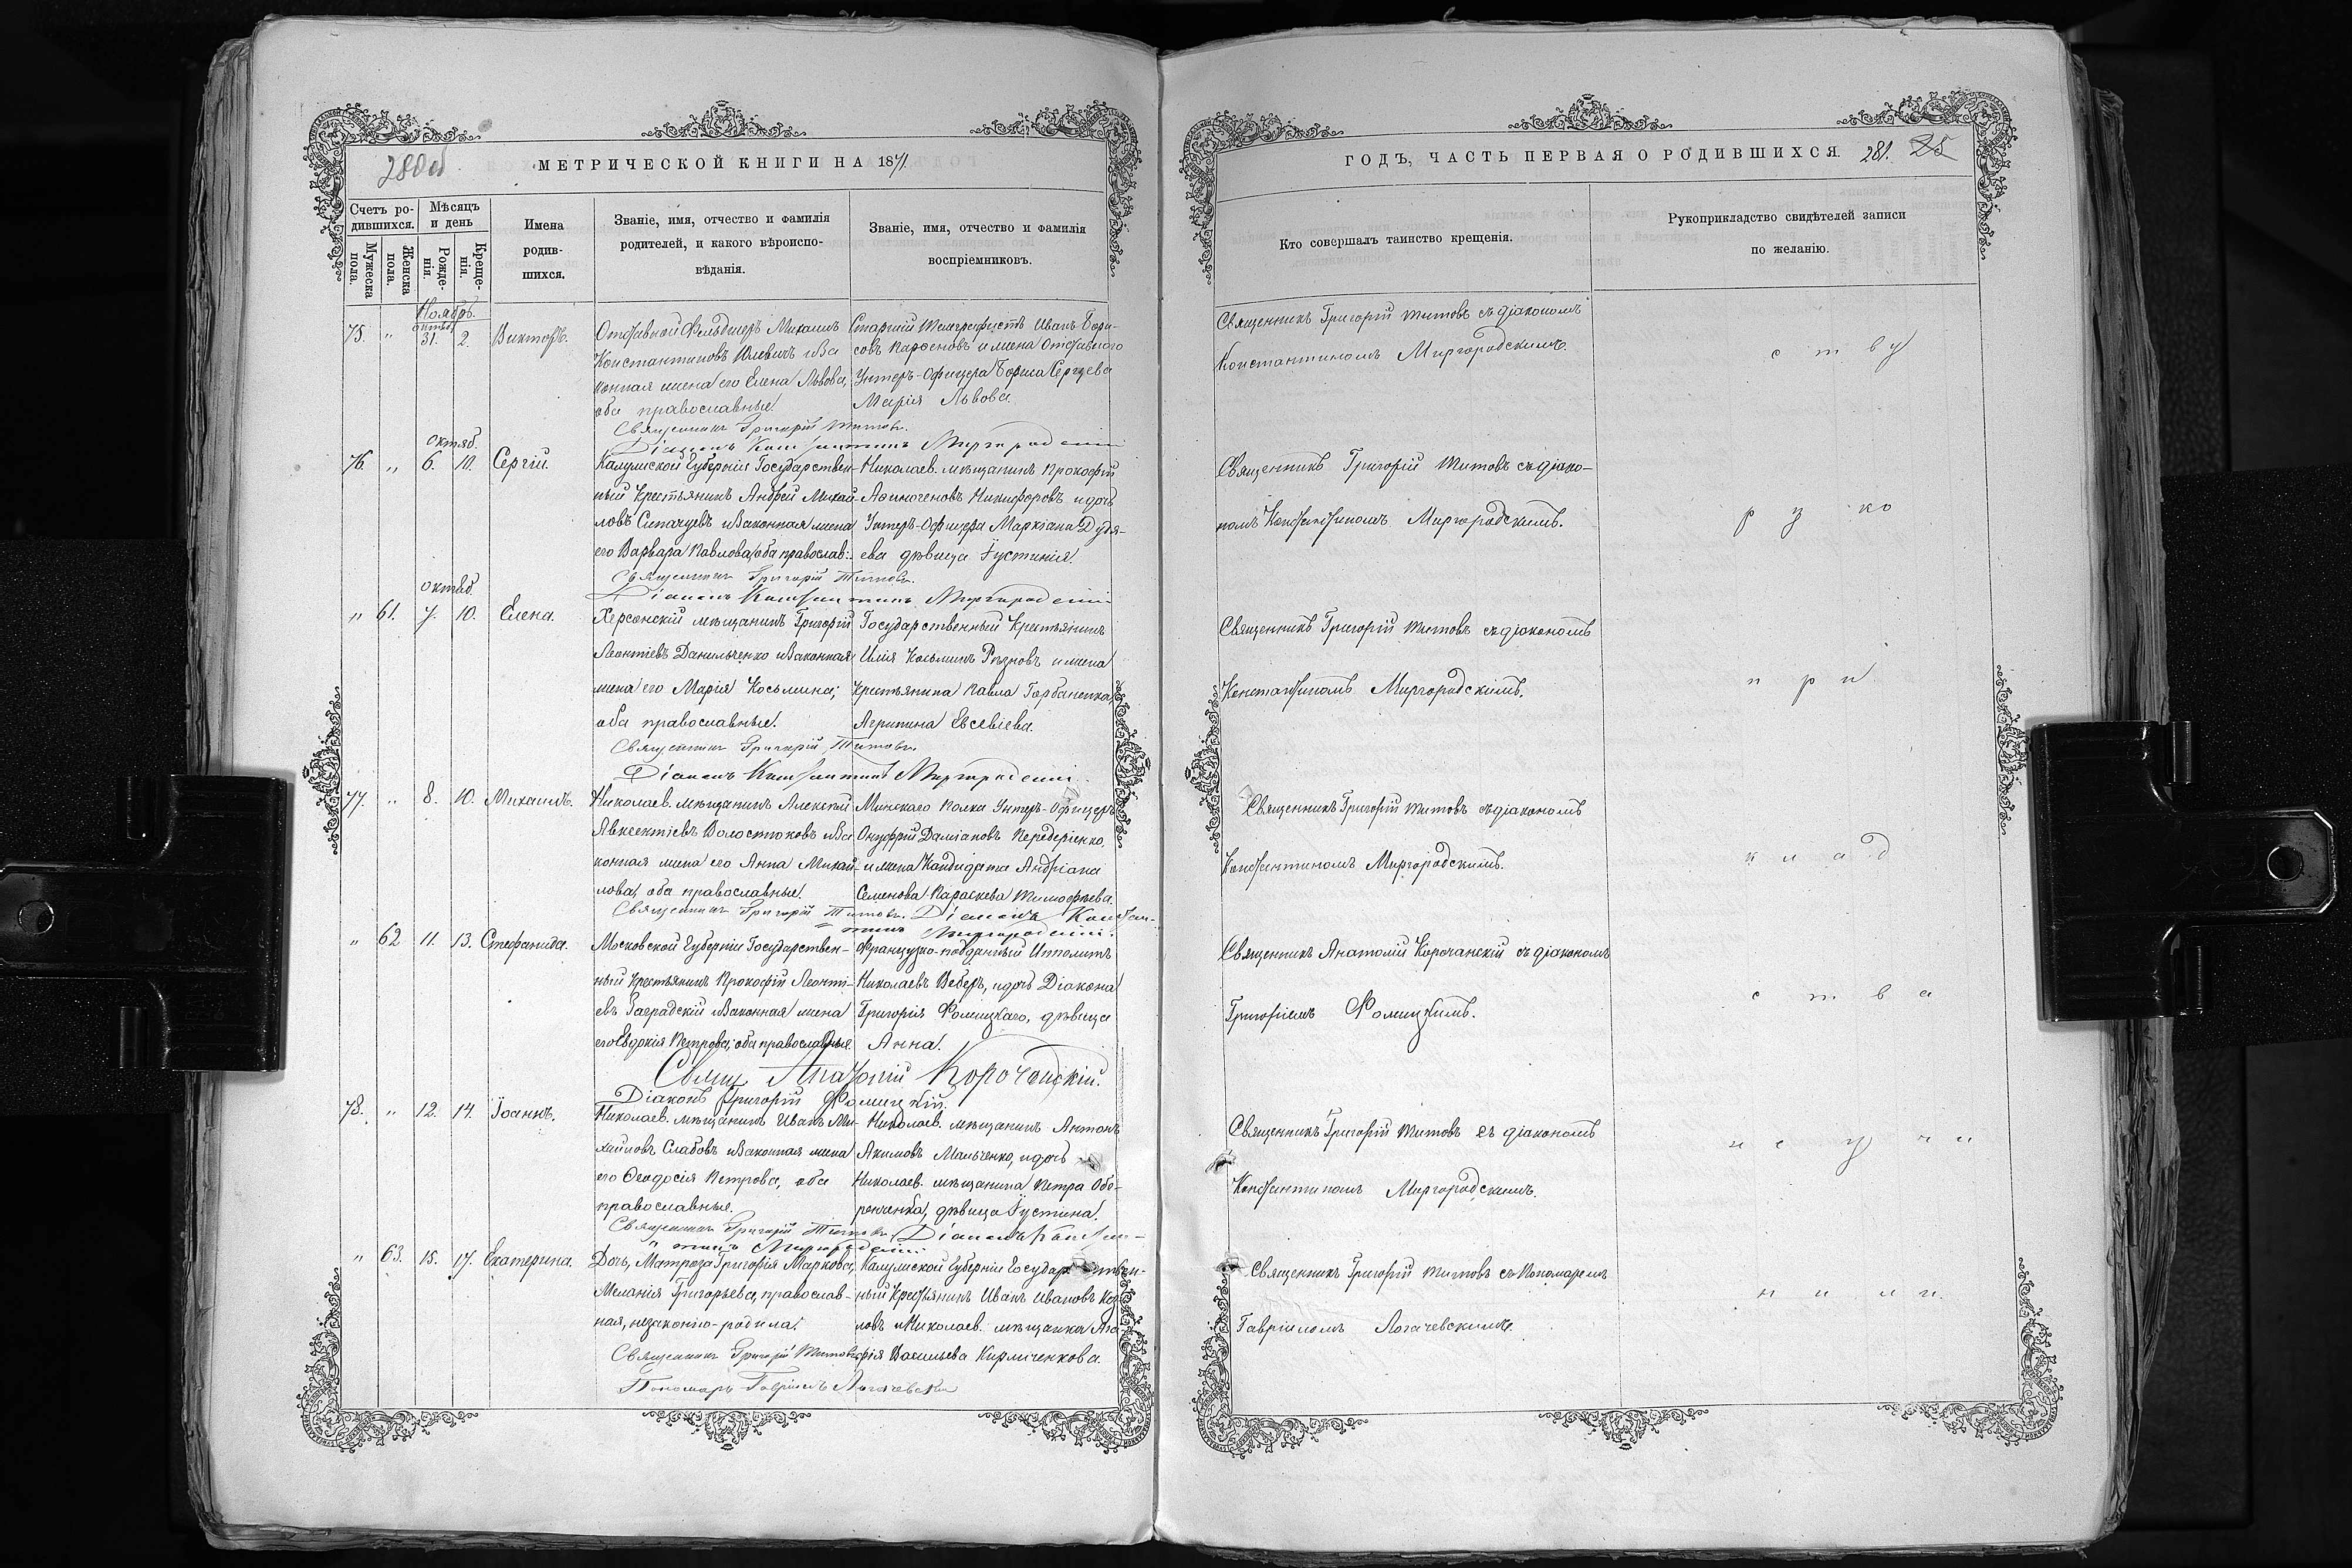 280об
МЕТРИЧЕСКОЙ КНИГИ НА 1871.
Счетъ ро-
дившихся.
Мужеска пола.
Женска пола.
Мѣсяцъ
и день
Рожде-
нія.
Креще-
нія.
Имена
родив-
шихся.
Званіе, имя, отчество и фамилія
родителей, и какого вѣроиспо-
вѣданія.
Званіе, имя, отчество и фамилія
воспріемниковъ.
Ноябрь
октяб.
75. " 31. 2. Викторъ.
Отставной Фельдшеръ Михаилъ
Константиновъ и за
конная жена его Елена Львова,
оба православные.
Старшій Телеграфистъ Иванъ Бори-
совъ Парѳеновъ и жена Отставнаго
Унтеръ-Офицера Бориса Сергѣева
Марія Львова.
Священникъ Григорій Титовъ.
Діаконъ Константинъ Миргородскій
октяб.
76. " 6. 10. Сергій.
Калужской Губерніи Государствен-
ный Крестьянинъ Андрей Михай-
ловъ и законная жена
его Варвара Павлова, оба православ:.
Николаев. мѣщанинъ Прокофій
Аѳиногеновъ Никифоровъ и дочь
Унтеръ-Офицера Маркіана Дудя-
ева дѣвица Іустинія.
Священникъ Григорій Титовъ.
Діаконъ Константинъ Миргородскій
октяб.
" 61. 7. 10. Елена.
Херсонскій мѣщанинъ Григорій
Леонтіевъ Данильченко и законная
жена его Марія Косьмина;
оба православные.
Государственный Крестьянинъ
Илія Косьминъ Рѣзновъ и жена
крестьянина Павла Горбаненка,
Агрипина Евсевіева.
Священникъ Григорій Титовъ.
Діаконъ Константинъ Миргородскій
77. " 8. 10. Михаилъ.
Николаев. мѣщанинъ Алексѣй
Авксентіевъ Волостноковъ и за
конная жена его Анна Михай-
лова, оба православные.
Минскаго Полка Унтеръ-Офицеръ
Онуфрій Даміановъ Передеріенко,
и жена Кандидата Андріана
Семенова Параскева Тимофѣева.
Священникъ Григорій Титовъ. Діаконъ Констан-
тинъ Миргородскій.
" 62 11. 13. Стефанида.
Московской Губерніи Государствен-
ный крестьянинъ Прокофій Леонті-
евъ Заградскій и законная жена
его Евдокія Петрова, оба православные.
Французко-подданный Ипполитъ
Николаевъ Веберъ, и дочь Діакона
Григорія Фомицкаго, дѣвица
Анна.
Свящ. Анатолій Корочанскій.
Діаконъ Григорій Фомицкій.
78. " 12. 14. Іоаннъ.
Николаев. мѣщанинъ Иванъ Ми-
хайловъ Слабовъ и законная жена
его Ѳеодосія Петрова, оба
православные.
Николаев. мѣщанинъ Антонъ
Акимовъ Мальченко, и дочь
Николаев. мѣщанина Петра Обе-
ременка, дѣвица Іустина.
Священникъ Григорій Титовъ. Діаконъ Констан-
тинъ Миргородскій
" 63. 15. 17. Екатерина.
Дочь, Матроза Григорія Маркова,
Меланія Григорьева, православ-
ная, незаконно-родила.
Калужской Губерніи Государствен-
ный Крестьянинъ Иванъ Ивановъ Коз-
ловъ и Николаев. мѣщанка Ага-
фія Васильева Кирпиченкова.
Священникъ Григорій Титовъ.
Пономарь Гавріилъ Логачевскій
ГОДЪ, ЧАСТЬ ПЕРВАЯ О РОДИВШИХСЯ. 281. 25
Кто совершалъ таинство крещенія.
Рукоприкладство свидѣтелей записи
по желанію.
Священникъ Григорій Титовъ съ діакономъ
Константиномъ Миргородскимъ.
с т в у
Священникъ Григорій Титовъ съ діако-
номъ Константиномъ Миргородскимъ.
р у ко
Священникъ Григорій Титовъ съ діакономъ
Константиномъ Миргородскимъ.
п р и
Священникъ Григорій Титовъ съ діакономъ
Константиномъ Миргородскимъ.
к л а д
Священникъ Анатолій Корочанскій съ діакономъ
Григоріемъ Фомицкимъ.
с т в а
Священникъ Григорій Титовъ съ діакономъ
Константиномъ Миргородскимъ.
н е у ч и
Священникъ Григорій Титовъ съ Пономаремъ
Гавріиломъ Логачевскимъ.
н и л и.